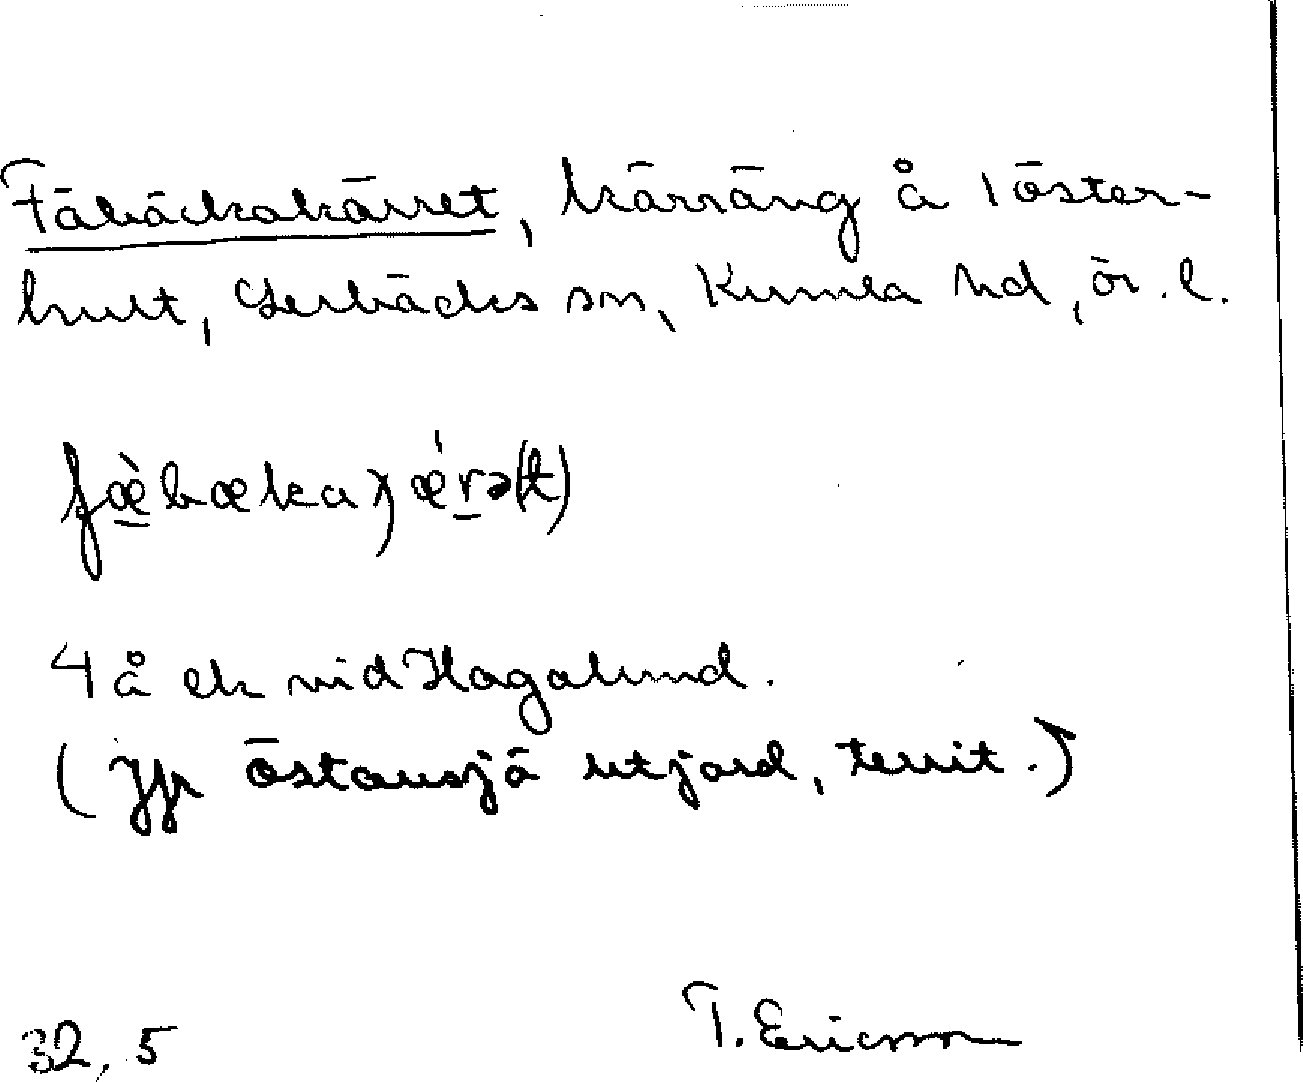 Fäbäckakärret, kärräng å 1 Öster-
hult, Lerbäcks sn, Kumla hd, Ör. l.
fæ̀bækaχǽrə(t)
4 å ek vid Hagalund.
(Jfr Östansjö utjord, territ.)
32, 5
T. Ericsson